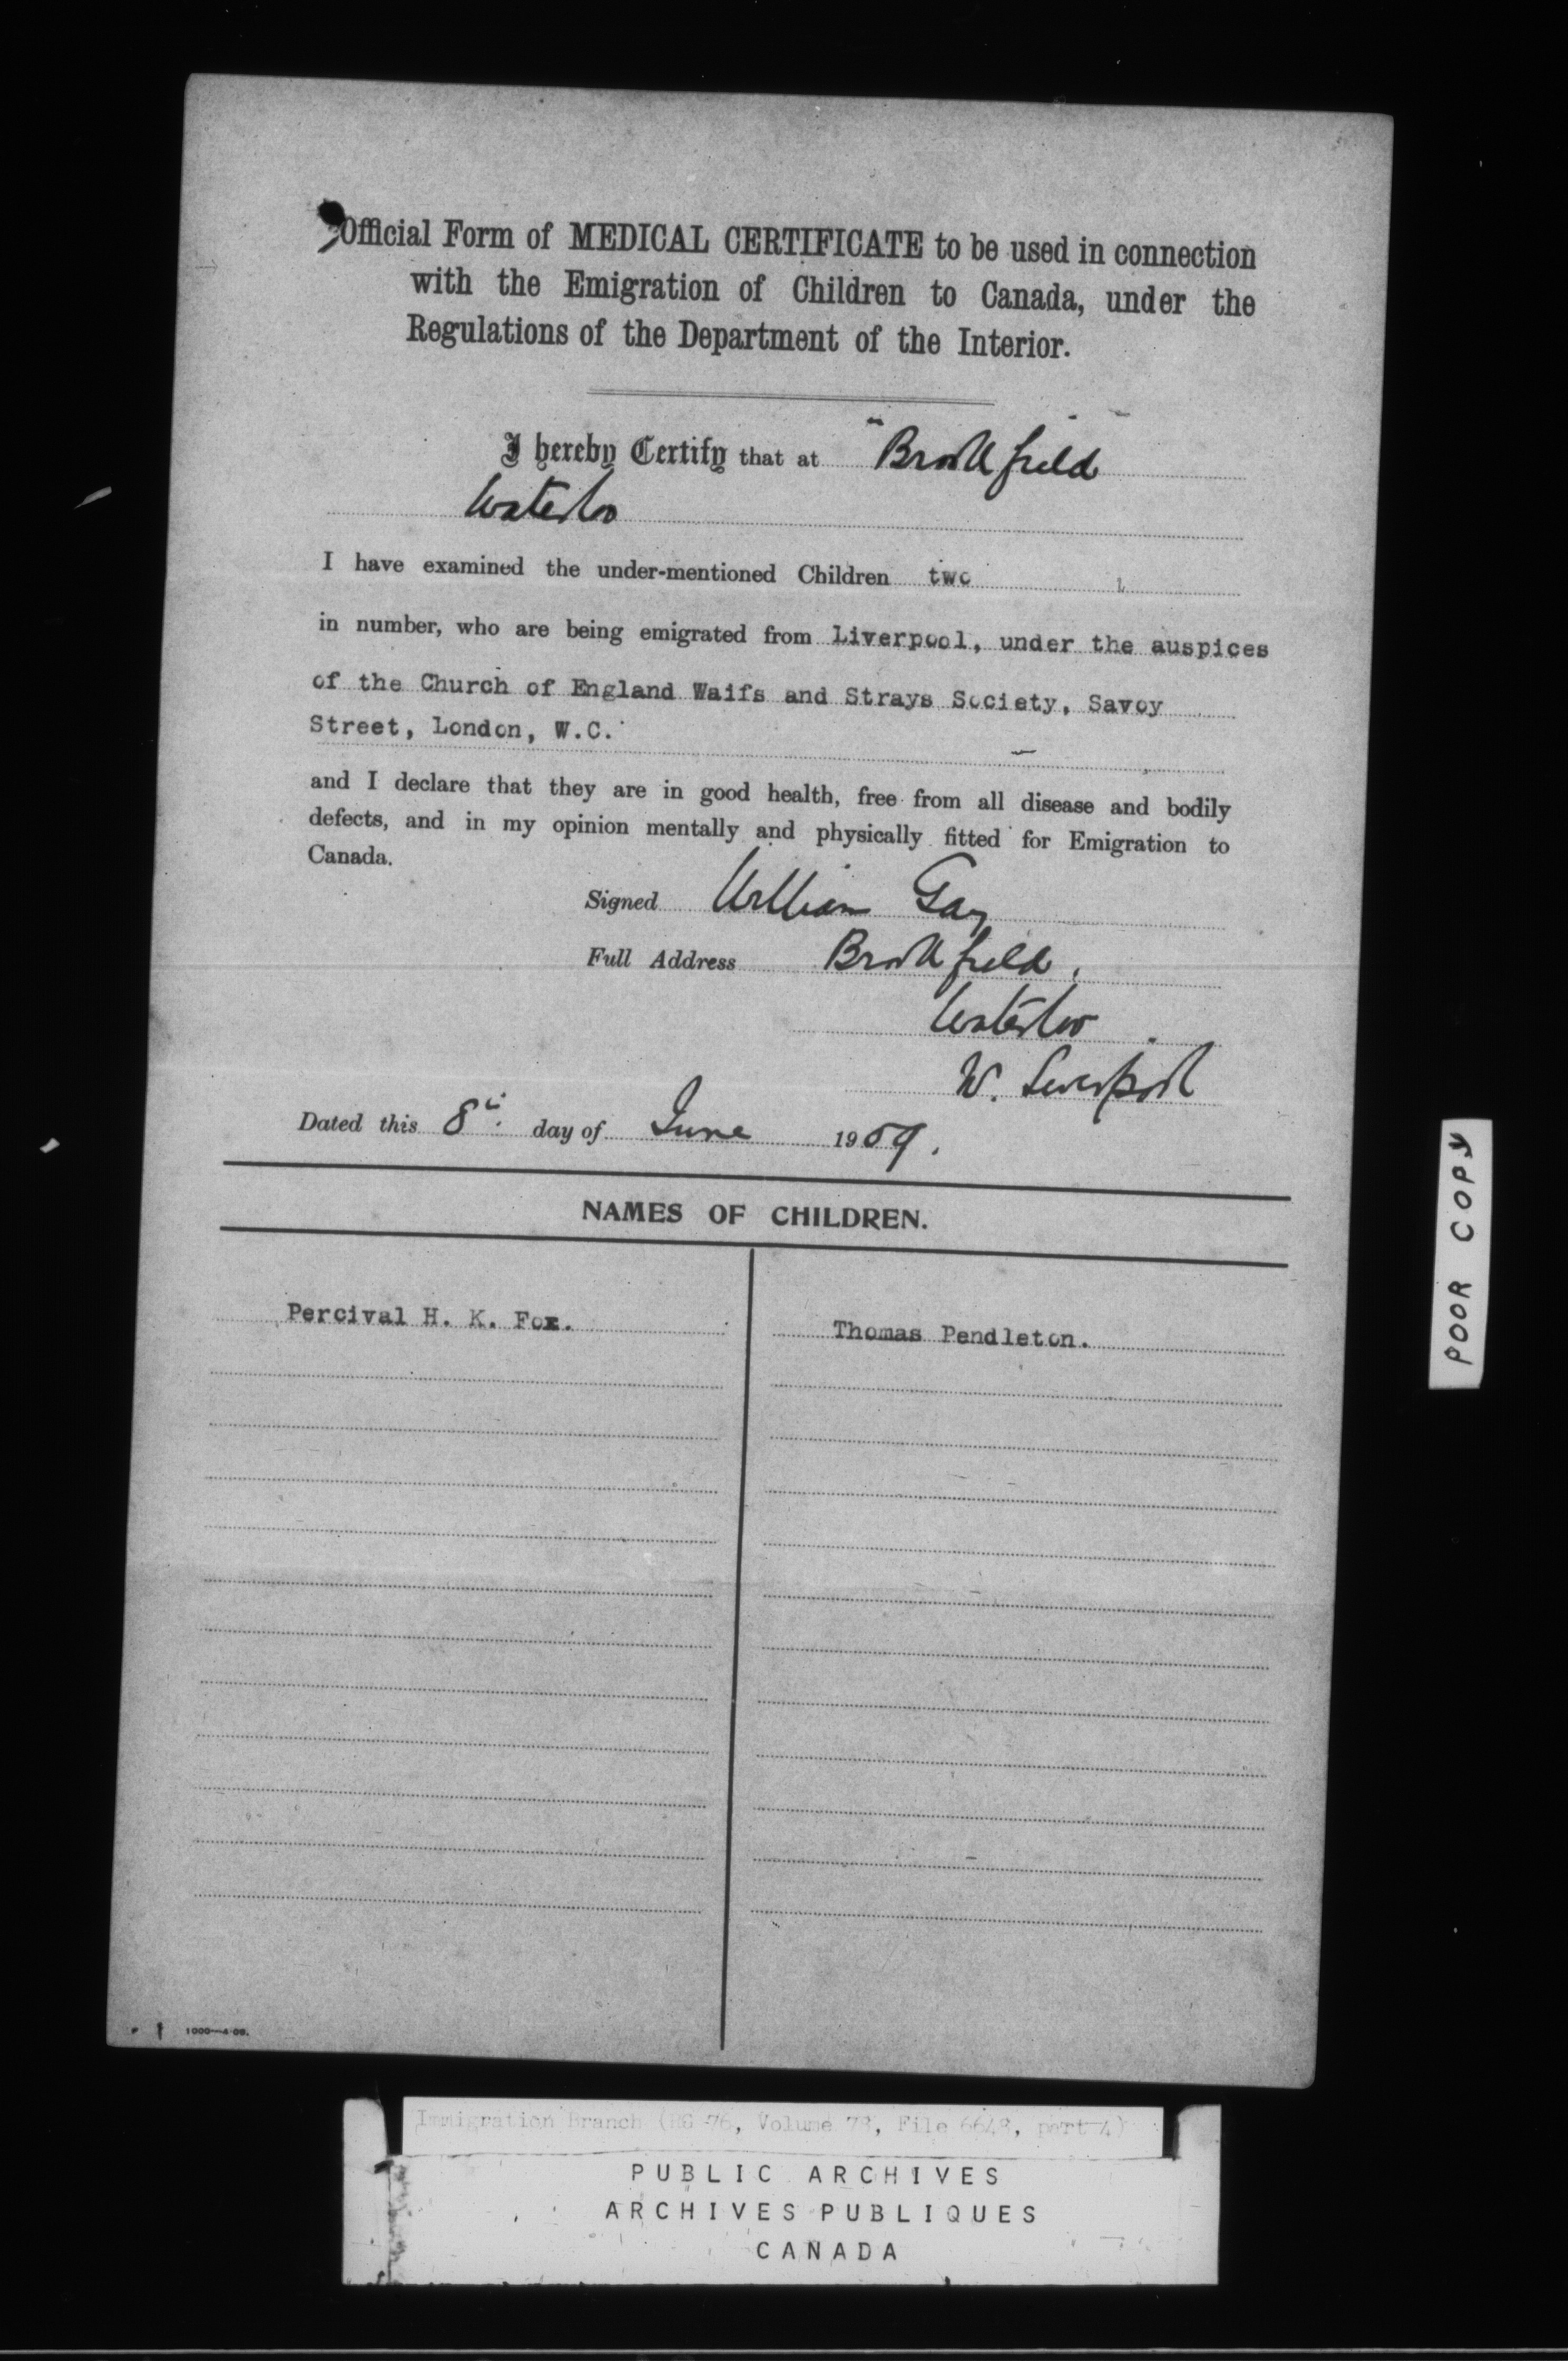 Official Form of MEDICAL CERTIFICATE to be used in connection
with the Emigration of Children to Canada, under the
Regulations of the Department of the Interior.
I hereby Certify that at "Brookfield"
Waterloo
I have examined the under-mentioned Children two
in number, who are being emigrated from Liverpool, under the auspices
of the Church of England Waifs and Strays Society, Savoy
Street, London, W.C.
and I declare that they are in good health, free from all disease and bodily
defects, and in my opinion mentally and physically fitted for Emigration to
Canada.
Signed William Gay
Full Address Brookfield,
Waterloo.
Liverpool
Dated this 8th day of June 1909.
NAMES OF CHILDREN.
Percival H. K. Fox.
Thomas Pendleton.
1000—4-09.
POOR COPY
Immigration Branch (RG 76, Volume 78, File 6648, part 4)
PUBLIC ARCHIVES
ARCHIVES PUBLIQUES
CANADA